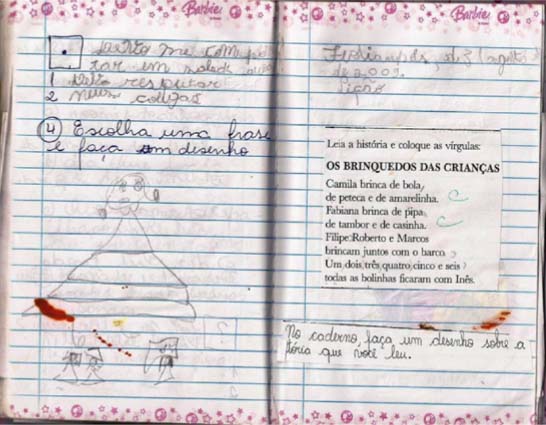 Barbie
devo me compor
tar em
1 devo respeitar
2 meus colegas
4 Escolha uma frase
e faça um desenho
Barbie
de 2009.
Lição
Leia a história e coloque as vírgulas:
OS BRINQUEDOS DAS CRIANÇAS
Camila brinca de bola,
de peteca e de amarelinha. C
Fabiana brinca de pipa,
de tambor e de casinha. C
Filipe, Roberto e Marcos
brincam juntos com o barco,
Um, dois, três, quatro, cinco e seis,
todas as bolinhas ficaram com Inês.
No caderno, faça um desenho sobre a
tória que você leu.